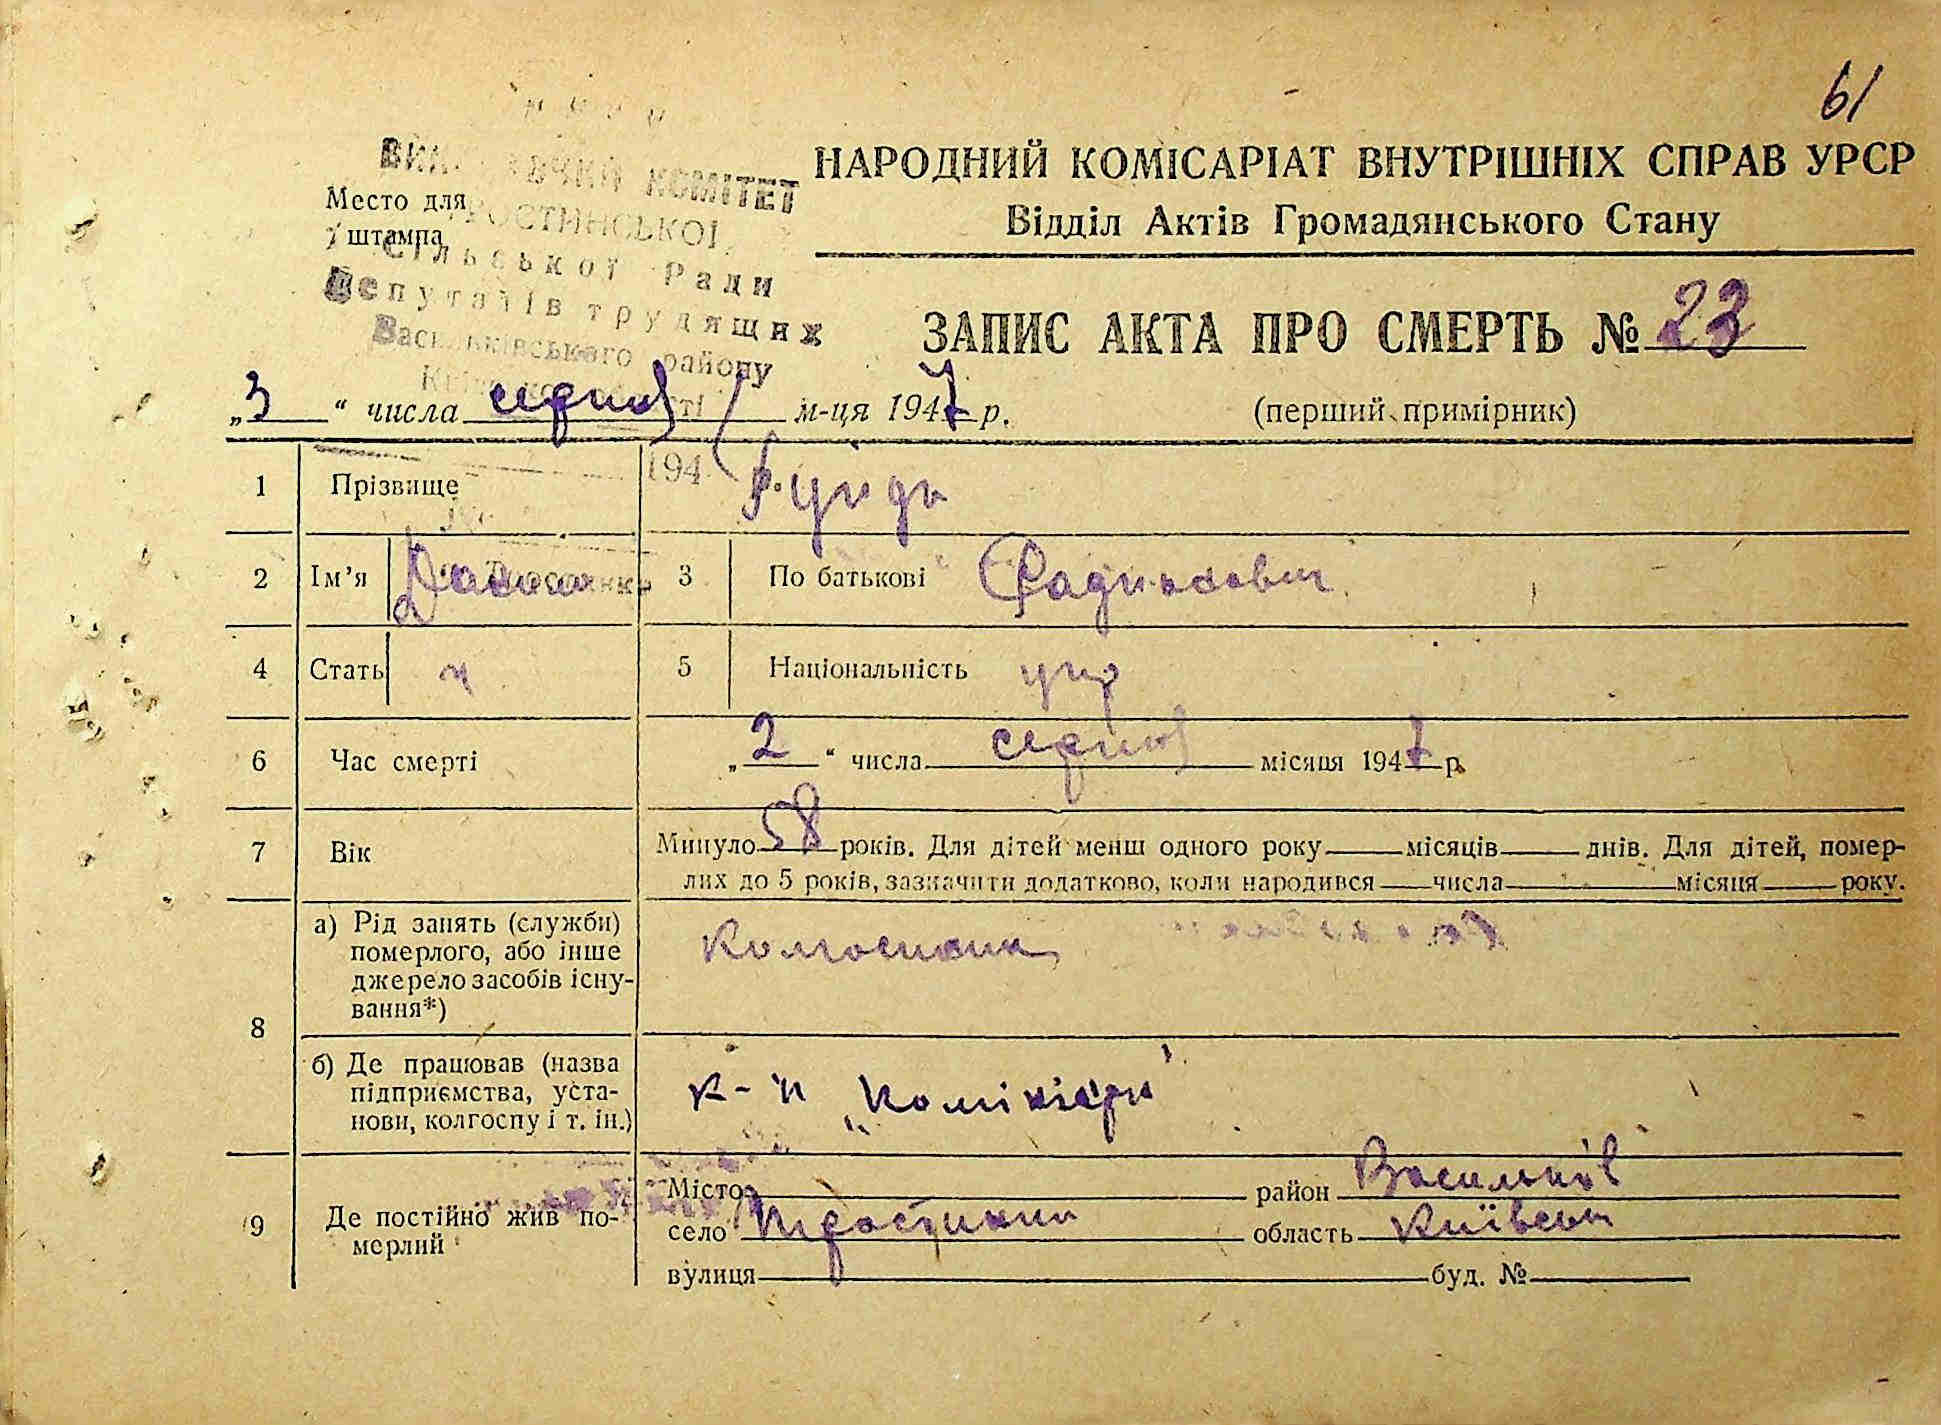 61
ВИКОНАВЧИЙ КОМІТЕТ
ТРОСТИНСЬКОЇ
Сільської Ради
Депутатів трудящих
Васильківського району
Київської області
Место для
штампа
НАРОДНИЙ КОМІСАРІАТ ВНУТРІШНІХ СПРАВ УРСР
Відділ Актів Громадянського Стану
ЗАПИС АКТА ПРО СМЕРТЬ № 23
„3“ числа серпня м-ця 1947 р.
(перший примірник)
194 р.
1 Прізвище
2 Ім’я 3 По батькові
4 Стать ч 5 Національність укр
6 Час смерті „2“ числа серпня місяця 1947 р.
7 Вік Минуло 58 років. Для дітей менш одного року місяців днів. Для дітей, помер-
лих до 5 років, зазначити додатково, коли народився числа місяця року.
8 а) Рід занять (служби)
померлого, або інше
джерело засобів існу-
вання*)
колгоспник
б) Де працював (назва
підприємства, уста-
нови, колгоспу і т. ін.)
к-п „Комінтерн“
9 Де постійно жив по-
мерлий
Місто район Васильків
село Тростинки область Київськ
вулиця буд. №